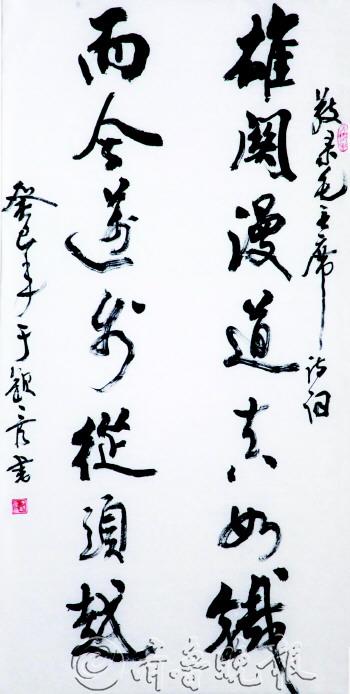 敬录毛主席诗词
雄關漫道真如鐵
而今邁步從頭越
癸巳年于書
©齊魯晚报